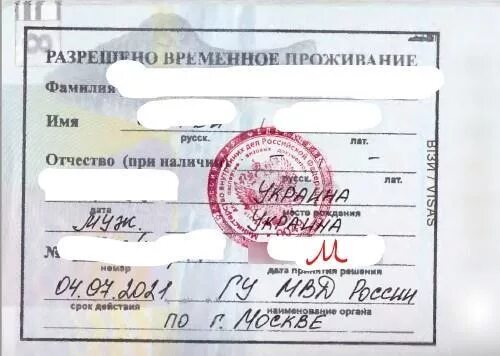 РАЗРЕШЕНО ВРЕМЕННОЕ ПРОЖИВАНИЕ
Фамилия
Имя
русск. лат.
Отчество (при наличии) –
русск. лат.
УКРАИНА
дата место рождения
МУЖ. УКРАИНА
№ М
номер дата принятия решения
04.07.2021 ГУ МВД РОССИИ
срок действия наименование органа
ПО Г. МОСКВЕ
ВИЗЫ VISAS